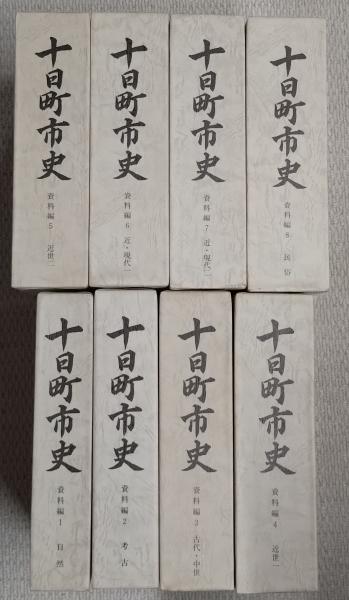 十日町市史
資料編5 近世二
十日町市史
資料編6 近・現代一
十日町市史
資料編7 近・現代二
十日町市史
資料編8 民俗
十日町市史
資料編1 自然
十日町市史
資料編2 考古
十日町市史
資料編3 古代・中世
十日町市史
資料編4 近世一